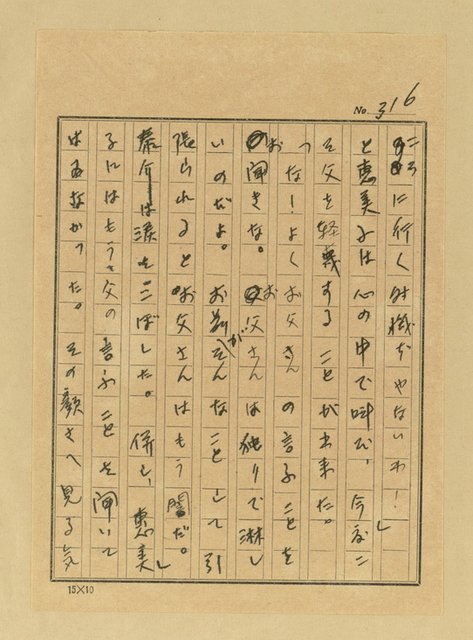 No. 316
に行く職ぢやないわ!」
と恵美子は心の中で叫び、今度こ
そ父を軽蔑することが出来た。
「な!よくお父さんの言ふことを
お聞きな。お父さんは独りで淋し
いのだよ。お前がそんなことして引
張られるとお父さんはもう闇だ。」
泰介は涙をこぼした。併し、恵美
子にはもう父の言ふことを聞いて
は居なかった。その顔さへ見る気
15×10